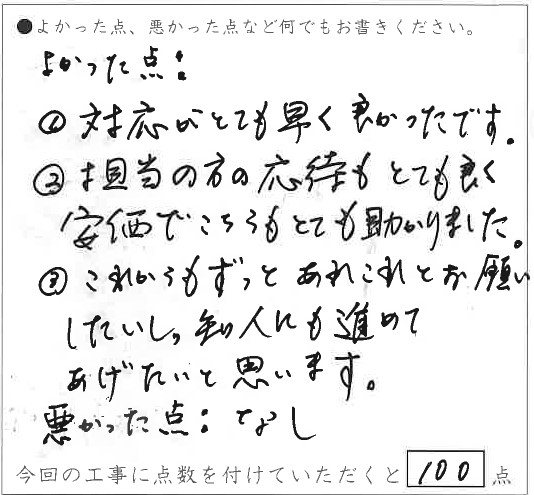 ●よかった点、悪かった点など何でもお書きください。
よかった点：
① 対応がとても早く良かったです。
② 担当の方の応待もとても良く
安価でこちらもとても助かりました。
③ これからもずっとあれこれとお願い
したいし、知人にも進めて
あげたいと思います。
悪かった点：なし
今回の工事に点数を付けていただくと 100 点